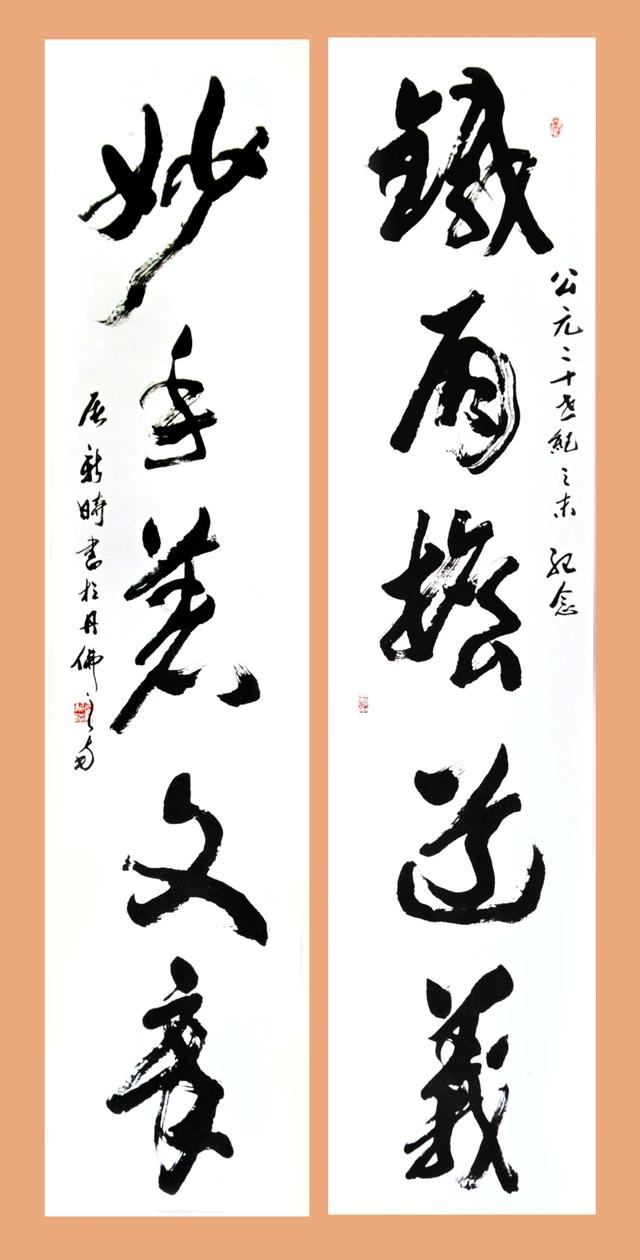 公元二十世紀之末 紀念
鐵肩擔道義
妙手著文章
屠新時書於丹佛之南